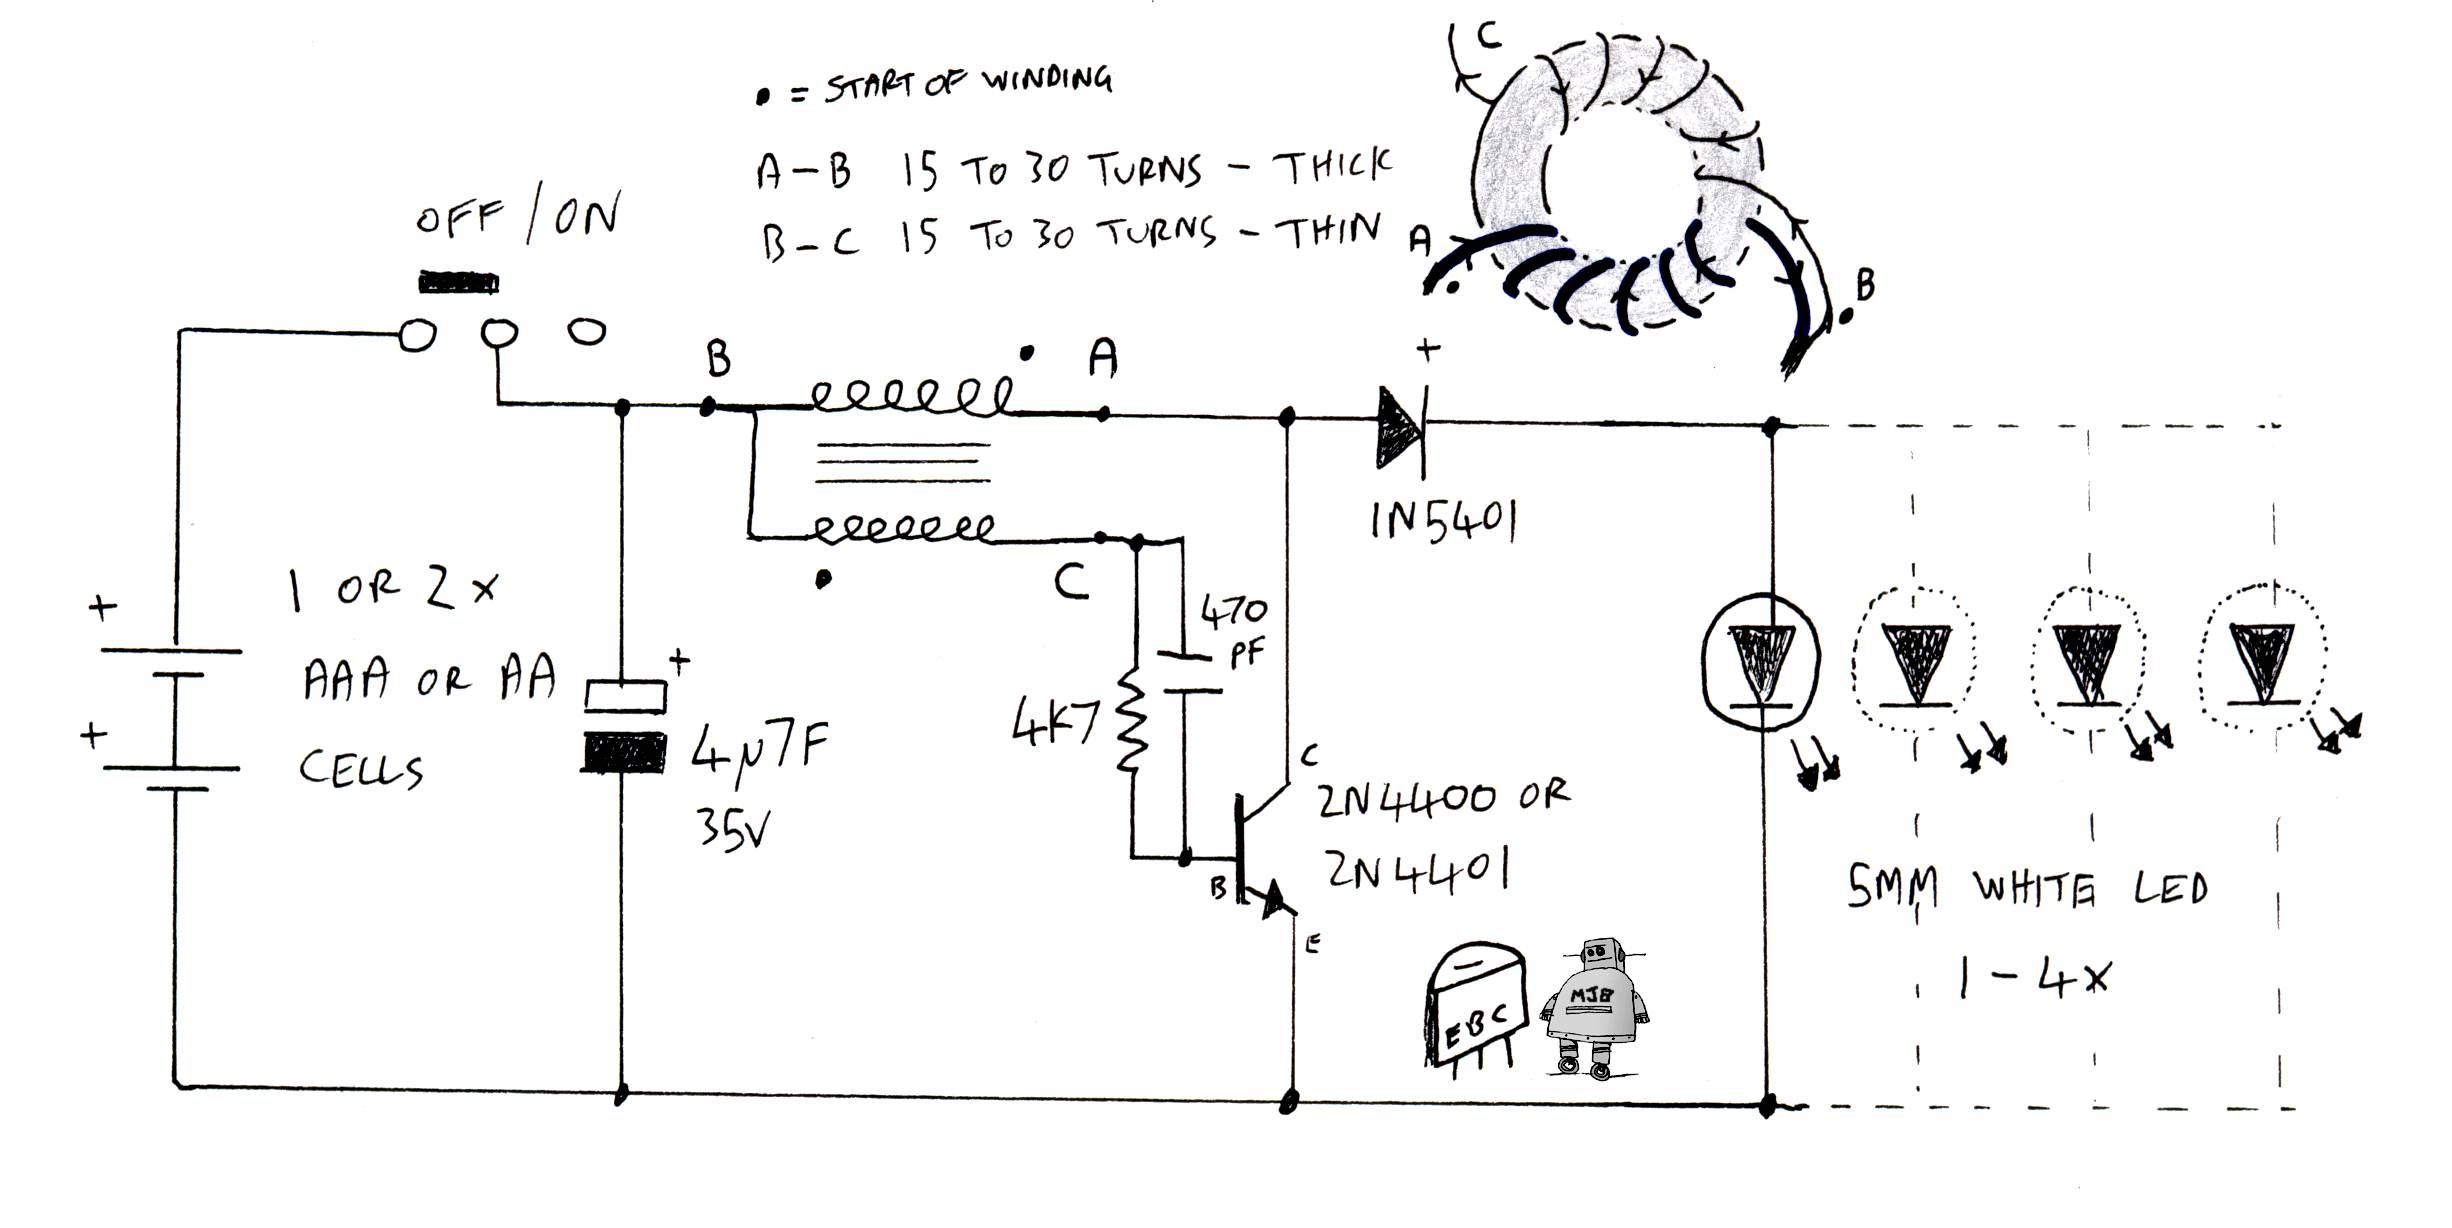 • = START OF WINDING
A – B 15 TO 30 TURNS – THICK
B – C 15 TO 30 TURNS – THIN
C
A
B
OFF / ON
B
A
+
1N5401
C
1 OR 2 x
AAA OR AA
CELLS
+
+
+
4µ7F
35V
470
PF
4K7
C
2N4400 OR
2N4401
B
E
5MM WHITE LED
1 – 4 x
E B C
MJB